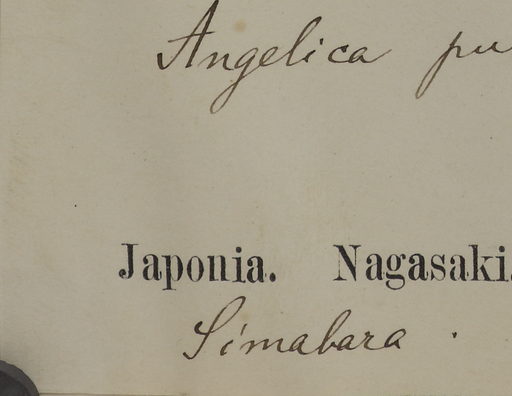 Angelica pu
Japonia. Nagasaki.
Simabara.